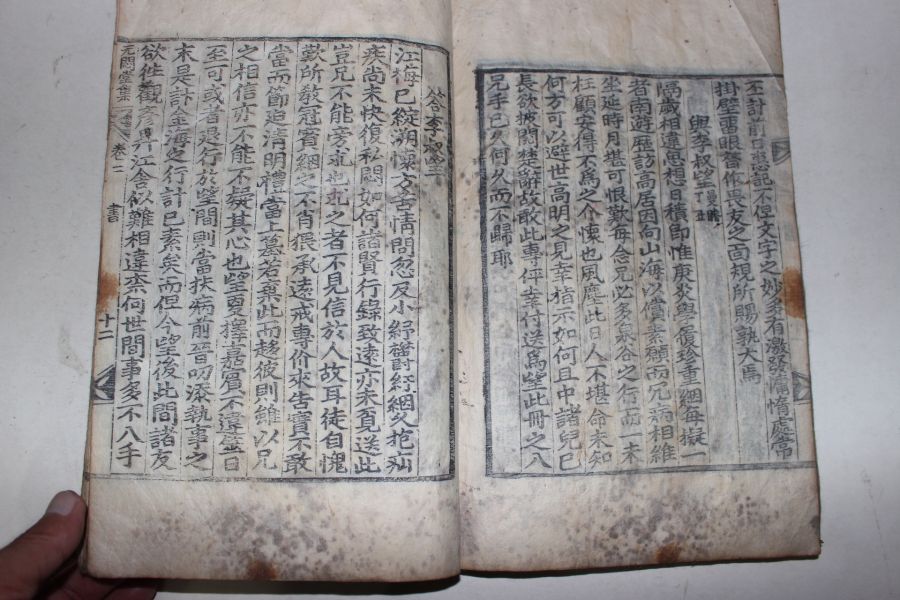 丕計前日惠記不但文字之妙多有激發庸惰處常
掛壁雷眼警作畏友之面規所賜孰大焉
與李叔望 丁丑
隔歲相違思想日積卽惟庚炎輿履珍重絪每擬一
者南遊歷訪高居因向山海以償素願而冗病相維
坐延時月堪可恨歎每念兄必多泉谷之行而一未
枉顧寔得不爲之介懷也風塵此日人不堪命未知
何方可以避世高明之見幸指示如何且中諸兒已
長欲披閱楚辭故敢此專伻幸付送爲望此冊之入
兄手已久何久而不歸耶
答李叔
江梅已綻溯懷方苦情問忽及小紓鬱紆絪久抱疝
疾尚未快復私悶如何諸賢行錄致遠亦未覓送此
豈兄不能旁求也之者不見信於人故耳徒自愧
歎所敎冠賓絪之不肖猥承遠戒專价來告實不敢
當而節迫淸明禮當上墓若棄此而越彼則雖以兄
之相信亦不能不疑其心也望更擇嘉賓不違盛日
至可或者退行於望間則當扶病前晉叨添執事之
末是計金海之行計已素矣而但今望後此間諸友
欲徃觀彥江舍似難相違奈何世間事多不入手
元悶堂集
卷二
書
十二